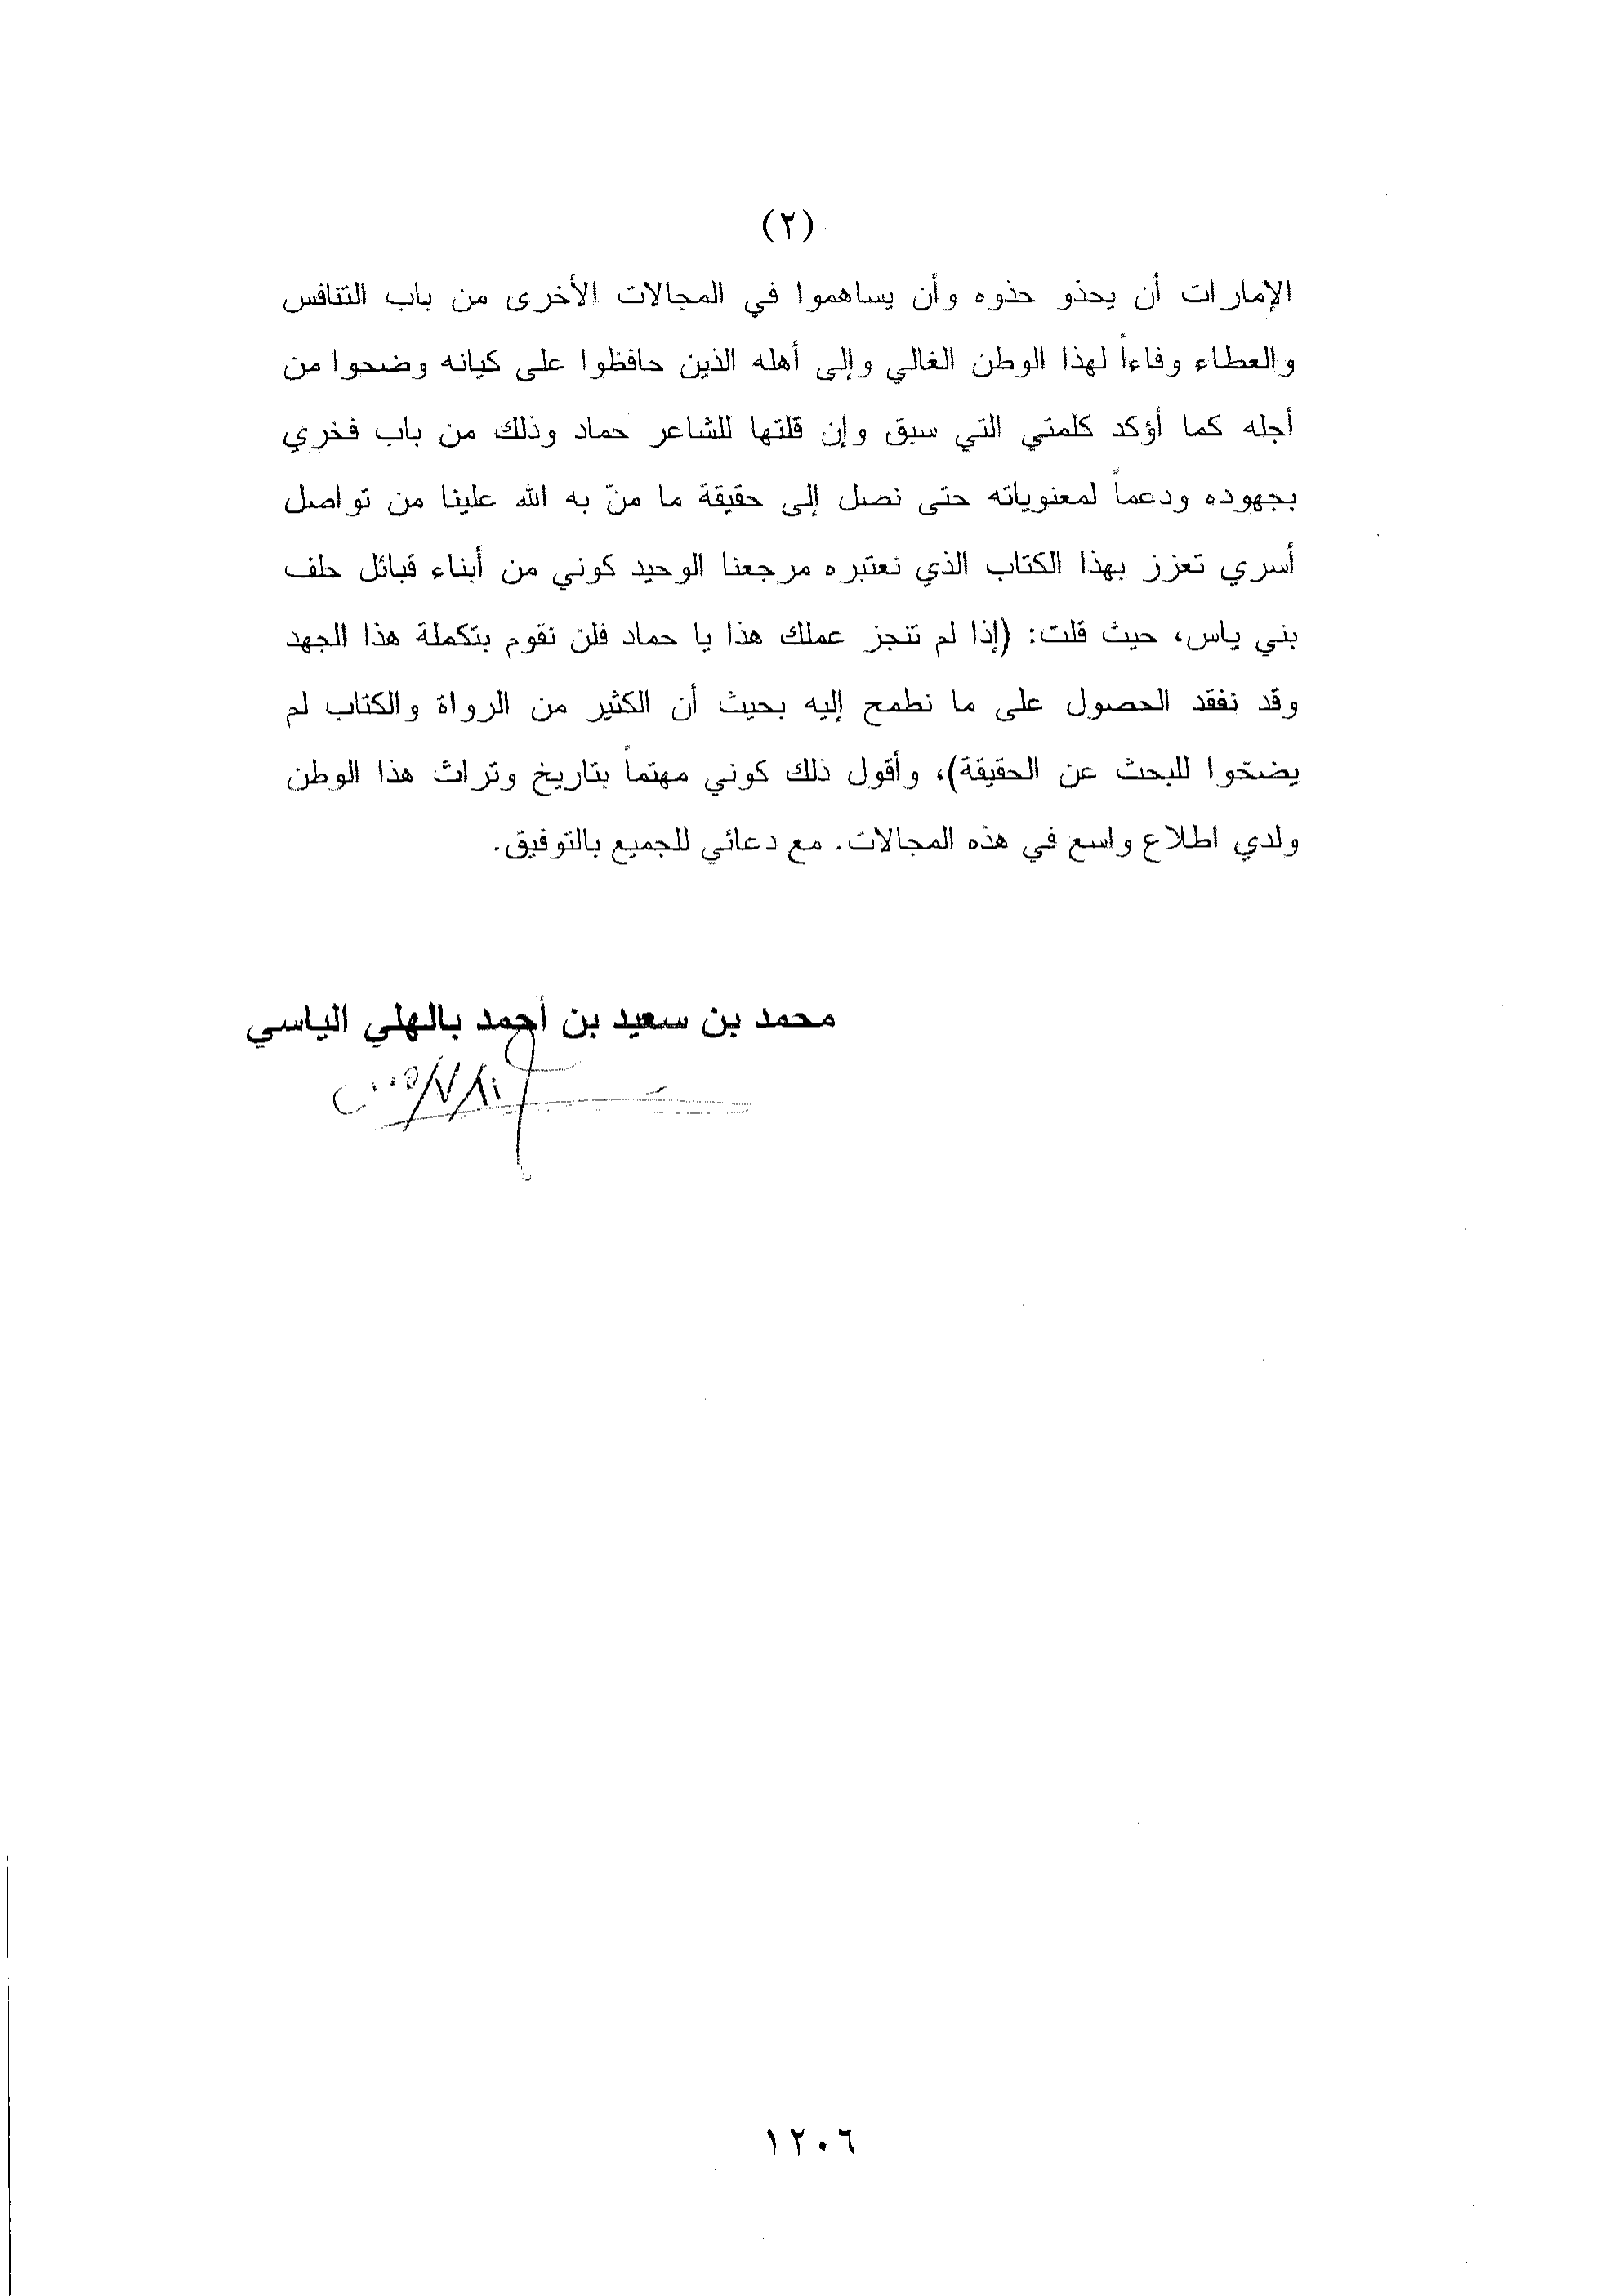 (٢)
الإمارات أن يحذو حذوه وأن يساهموا في المجالات الأخرى من باب التنافس
والعطاء وفاءاً لهذا الوطن الغالي وإلى أهله الذين حافظوا على كيانه وضحوا من
أجله كما أؤكد كلمتي التي سبق وإن قلتها للشاعر حماد وذلك من باب فخري
بجهوده ودعماً لمعنوياته حتى نصل إلى حقيقة ما منّ به الله علينا من تواصل
أسري تعزز بهذا الكتاب الذي نعتبره مرجعنا الوحيد كوني من أبناء قبائل حلف
بني ياس، حيث قلت: (إذا لم تنجز عملك هذا يا حماد فلن نقوم بتكملة هذا الجهد
وقد نفقد الحصول على ما نطمح إليه بحيث أن الكثير من الرواة والكتاب لم
يضحّوا للبحث عن الحقيقة)، وأقول ذلك كوني مهتماً بتاريخ وتراث هذا الوطن
ولدي اطلاع واسع في هذه المجالات. مع دعائي للجميع بالتوفيق.
محمد بن سعيد بن أحمد بالهلي الياسي
١٢٠٦